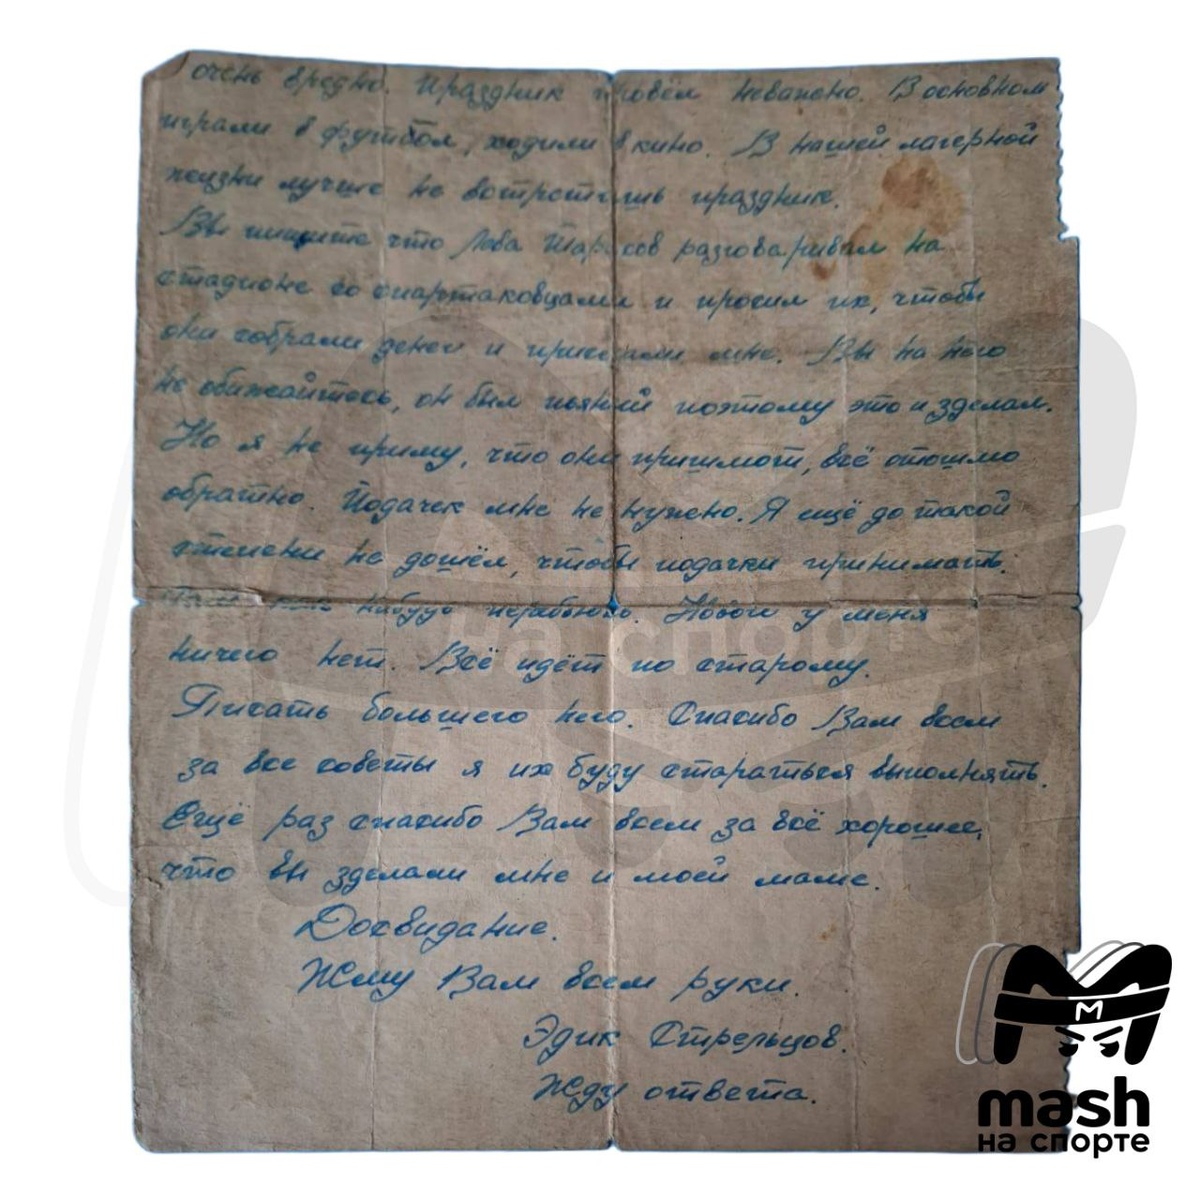 очень вредно. Праздник провёл неважно. В основном
играли в футбол, ходили в кино. В нашей лагерной
жизни лучше не встретишь праздник.
Вы пишите что Лёва Тарасов разговаривал на
стадионе со спартаковцами и просил их, чтобы
они собрали денег и прислали мне. Вы на него
не обижайтесь, он был пьяный поэтому это и зделал.
Но я не приму, что они пришлют, всё отошлю
обратно. Подачек мне не нужно. Я ещё до такой
степени не дошёл, чтобы подачки принимать.
нибудь перебьюсь. Новое у меня
ничего нет. Всё идёт по старому.
Писать большего него. Спасибо Вам всем
за все советы я их буду стараться выполнять.
Ещё раз спасибо Вам всем за всё хорошее,
что вы зделали мне и моей маме.
Досвидание.
Жму Вам всем руки.
Эдик Стрельцов.
Жду ответа.
M
mash
на спорте